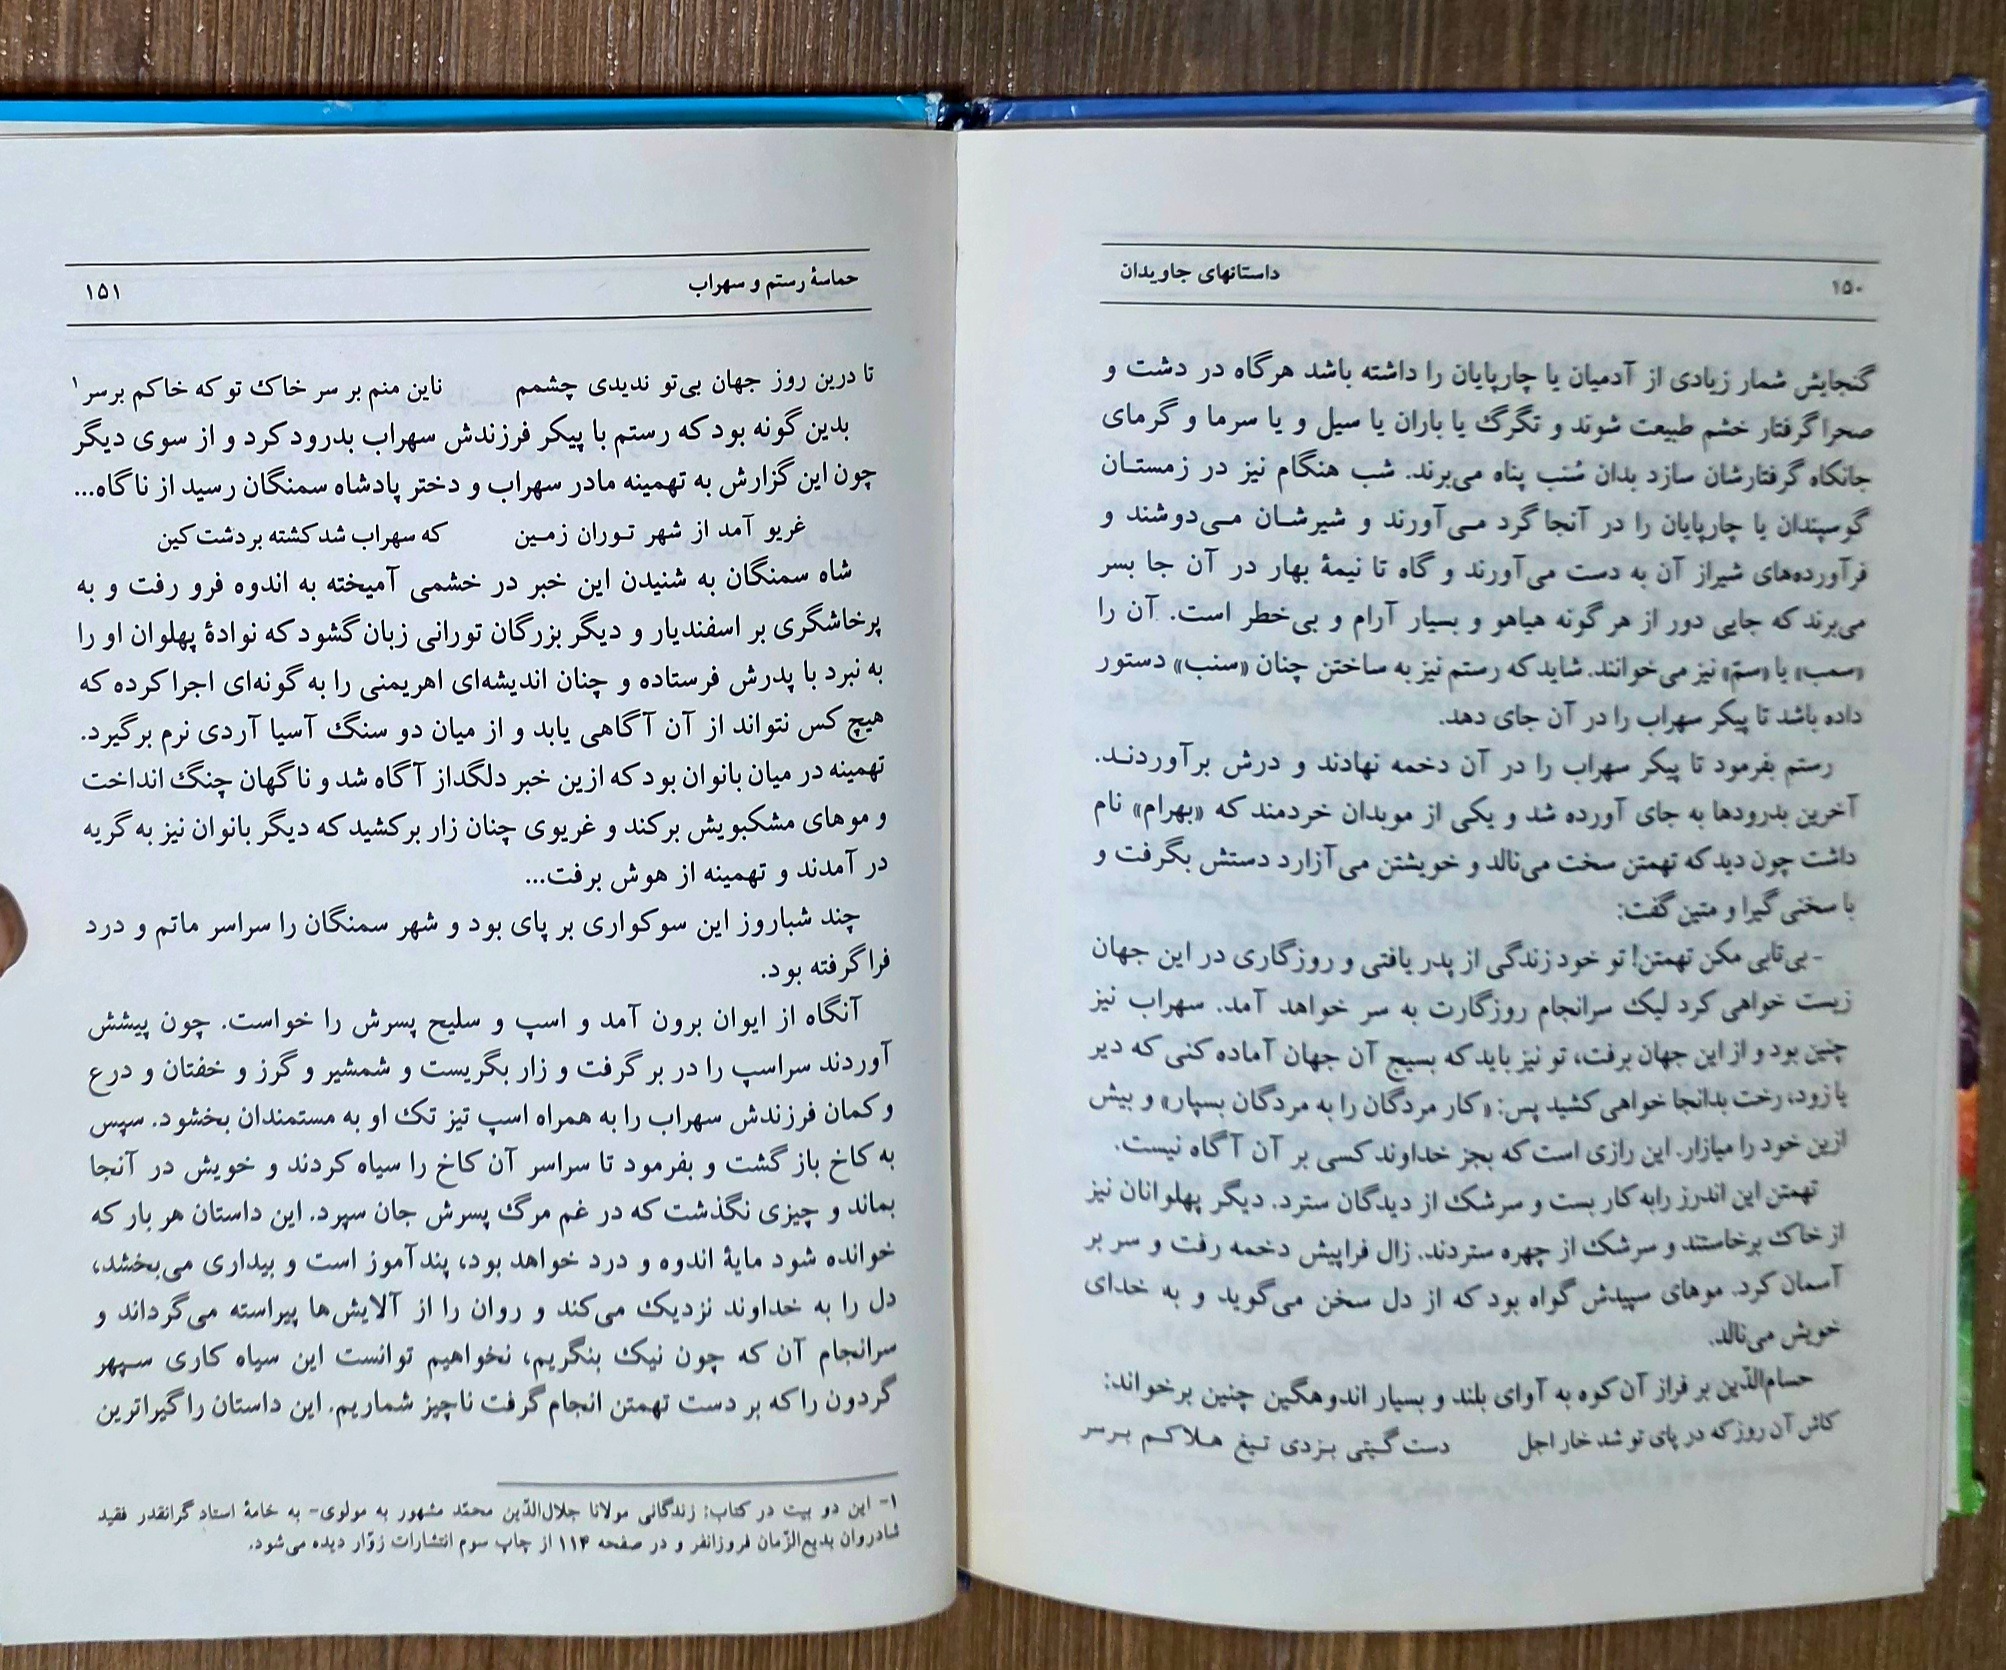 ۱۵۰ داستانهای جاویدان
گنجایش شمار زیادی از آدمیان یا چارپایان را داشته باشد هرگاه در دشت و
صحرا گرفتار خشم طبیعت شوند و تگرگ یا باران یا سیل و یا سرما و گرمای
جانکاه گرفتارشان سازد بدان سُنب پناه می‌برند. شب هنگام نیز در زمستان
گوسپندان یا چارپایان را در آنجا گرد می‌آورند و شیرشان می‌دوشند و
فرآورده‌های شیراز آن به دست می‌آورند و گاه تا نیمهٔ بهار در آن جا بسر
می‌برند که جایی دور از هر گونه هیاهو و بسیار آرام و بی‌خطر است. آن را
«سمب» یا «سم» نیز می‌خوانند. شاید که رستم نیز به ساختن چنان «سنب» دستور
داده باشد تا پیکر سهراب را در آن جای دهد.
رستم بفرمود تا پیکر سهراب را در آن دخمه نهادند و درش برآوردند.
آخرین بدرودها به جای آورده شد و یکی از موبدان خردمند که «بهرام» نام
داشت چون دید که تهمتن سخت می‌نالد و خویشتن می‌آزارد دستش بگرفت و
با سخنی گیرا و متین گفت:
- بی‌تابی مکن تهمتن! تو خود زندگی از پدر یافتی و روزگاری در این جهان
زیست خواهی کرد لیک سرانجام روزگارت به سر خواهد آمد. سهراب نیز
چنین بود و از این جهان برفت، تو نیز باید که بسیج آن جهان آماده کنی که دیر
یا زود، رخت بدانجا خواهی کشید پس: «کار مردگان را به مردگان بسپار» و بیش
ازین خود را میازار. این رازی است که بجز خداوند کسی بر آن آگاه نیست.
تهمتن این اندرز رابه کار بست و سرشک از دیدگان سترد. دیگر پهلوانان نیز
از خاک برخاستند و سرشک از چهره ستردند. زال فراپیش دخمه رفت و سر بر
آسمان کرد. موهای سپیدش گواه بود که از دل سخن می‌گوید و به خدای
خویش می‌نالد.
حسام‌الدّین بر فراز آن کوه به آوای بلند و بسیار اندوهگین چنین برخواند:
کاش آن روز که در پای تو شد خار اجل دست گیتی بزدی تیغ هلاکم برسر
حماسهٔ رستم و سهراب ۱۵۱
تا درین روز جهان بی‌تو ندیدی چشمم ناین منم بر سر خاک تو که خاکم برسر۱
بدین گونه بود که رستم با پیکر فرزندش سهراب بدرود کرد و از سوی دیگر
چون این گزارش به تهمینه مادر سهراب و دختر پادشاه سمنگان رسید از ناگاه...
غریو آمد از شهر توران زمین که سهراب شد کشته بردشت کین
شاه سمنگان به شنیدن این خبر در خشمی آمیخته به اندوه فرو رفت و به
پرخاشگری بر اسفندیار و دیگر بزرگان تورانی زبان گشود که نوادهٔ پهلوان او را
به نبرد با پدرش فرستاده و چنان اندیشه‌ای اهریمنی را به گونه‌ای اجرا کرده که
هیچ کس نتواند از آن آگاهی یابد و از میان دو سنگ آسیا آردی نرم برگیرد.
تهمینه در میان بانوان بود که ازین خبر دلگداز آگاه شد و ناگهان چنگ انداخت
و موهای مشکبویش برکند و غریوی چنان زار برکشید که دیگر بانوان نیز به گریه
در آمدند و تهمینه از هوش برفت...
چند شباروز این سوکواری بر پای بود و شهر سمنگان را سراسر ماتم و درد
فراگرفته بود.
آنگاه از ایوان برون آمد و اسپ و سلیح پسرش را خواست. چون پیشش
آوردند سراسپ را در بر گرفت و زار بگریست و شمشیر و گرز و خفتان و درع
و کمان فرزندش سهراب را به همراه اسپ تیز تک او به مستمندان بخشود. سپس
به کاخ باز گشت و بفرمود تا سراسر آن کاخ را سیاه کردند و خویش در آنجا
بماند و چیزی نگذشت که در غم مرگ پسرش جان سپرد. این داستان هر بار که
خوانده شود مایهٔ اندوه و درد خواهد بود، پندآموز است و بیداری می‌بخشد،
دل را به خداوند نزدیک می‌کند و روان را از آلایش‌ها پیراسته می‌گرداند و
سرانجام آن که چون نیک بنگریم، نخواهیم توانست این سیاه کاری سپهر
گردون را که بر دست تهمتن انجام گرفت ناچیز شماریم. این داستان را گیراترین
۱- این دو بیت در کتاب: زندگانی مولانا جلال‌الدّین محمّد مشهور به مولوی- به خامهٔ استاد گرانقدر فقید
شادروان بدیع‌الزّمان فروزانفر و در صفحه ۱۱۴ از چاپ سوم انتشارات زوّار دیده می‌شود.